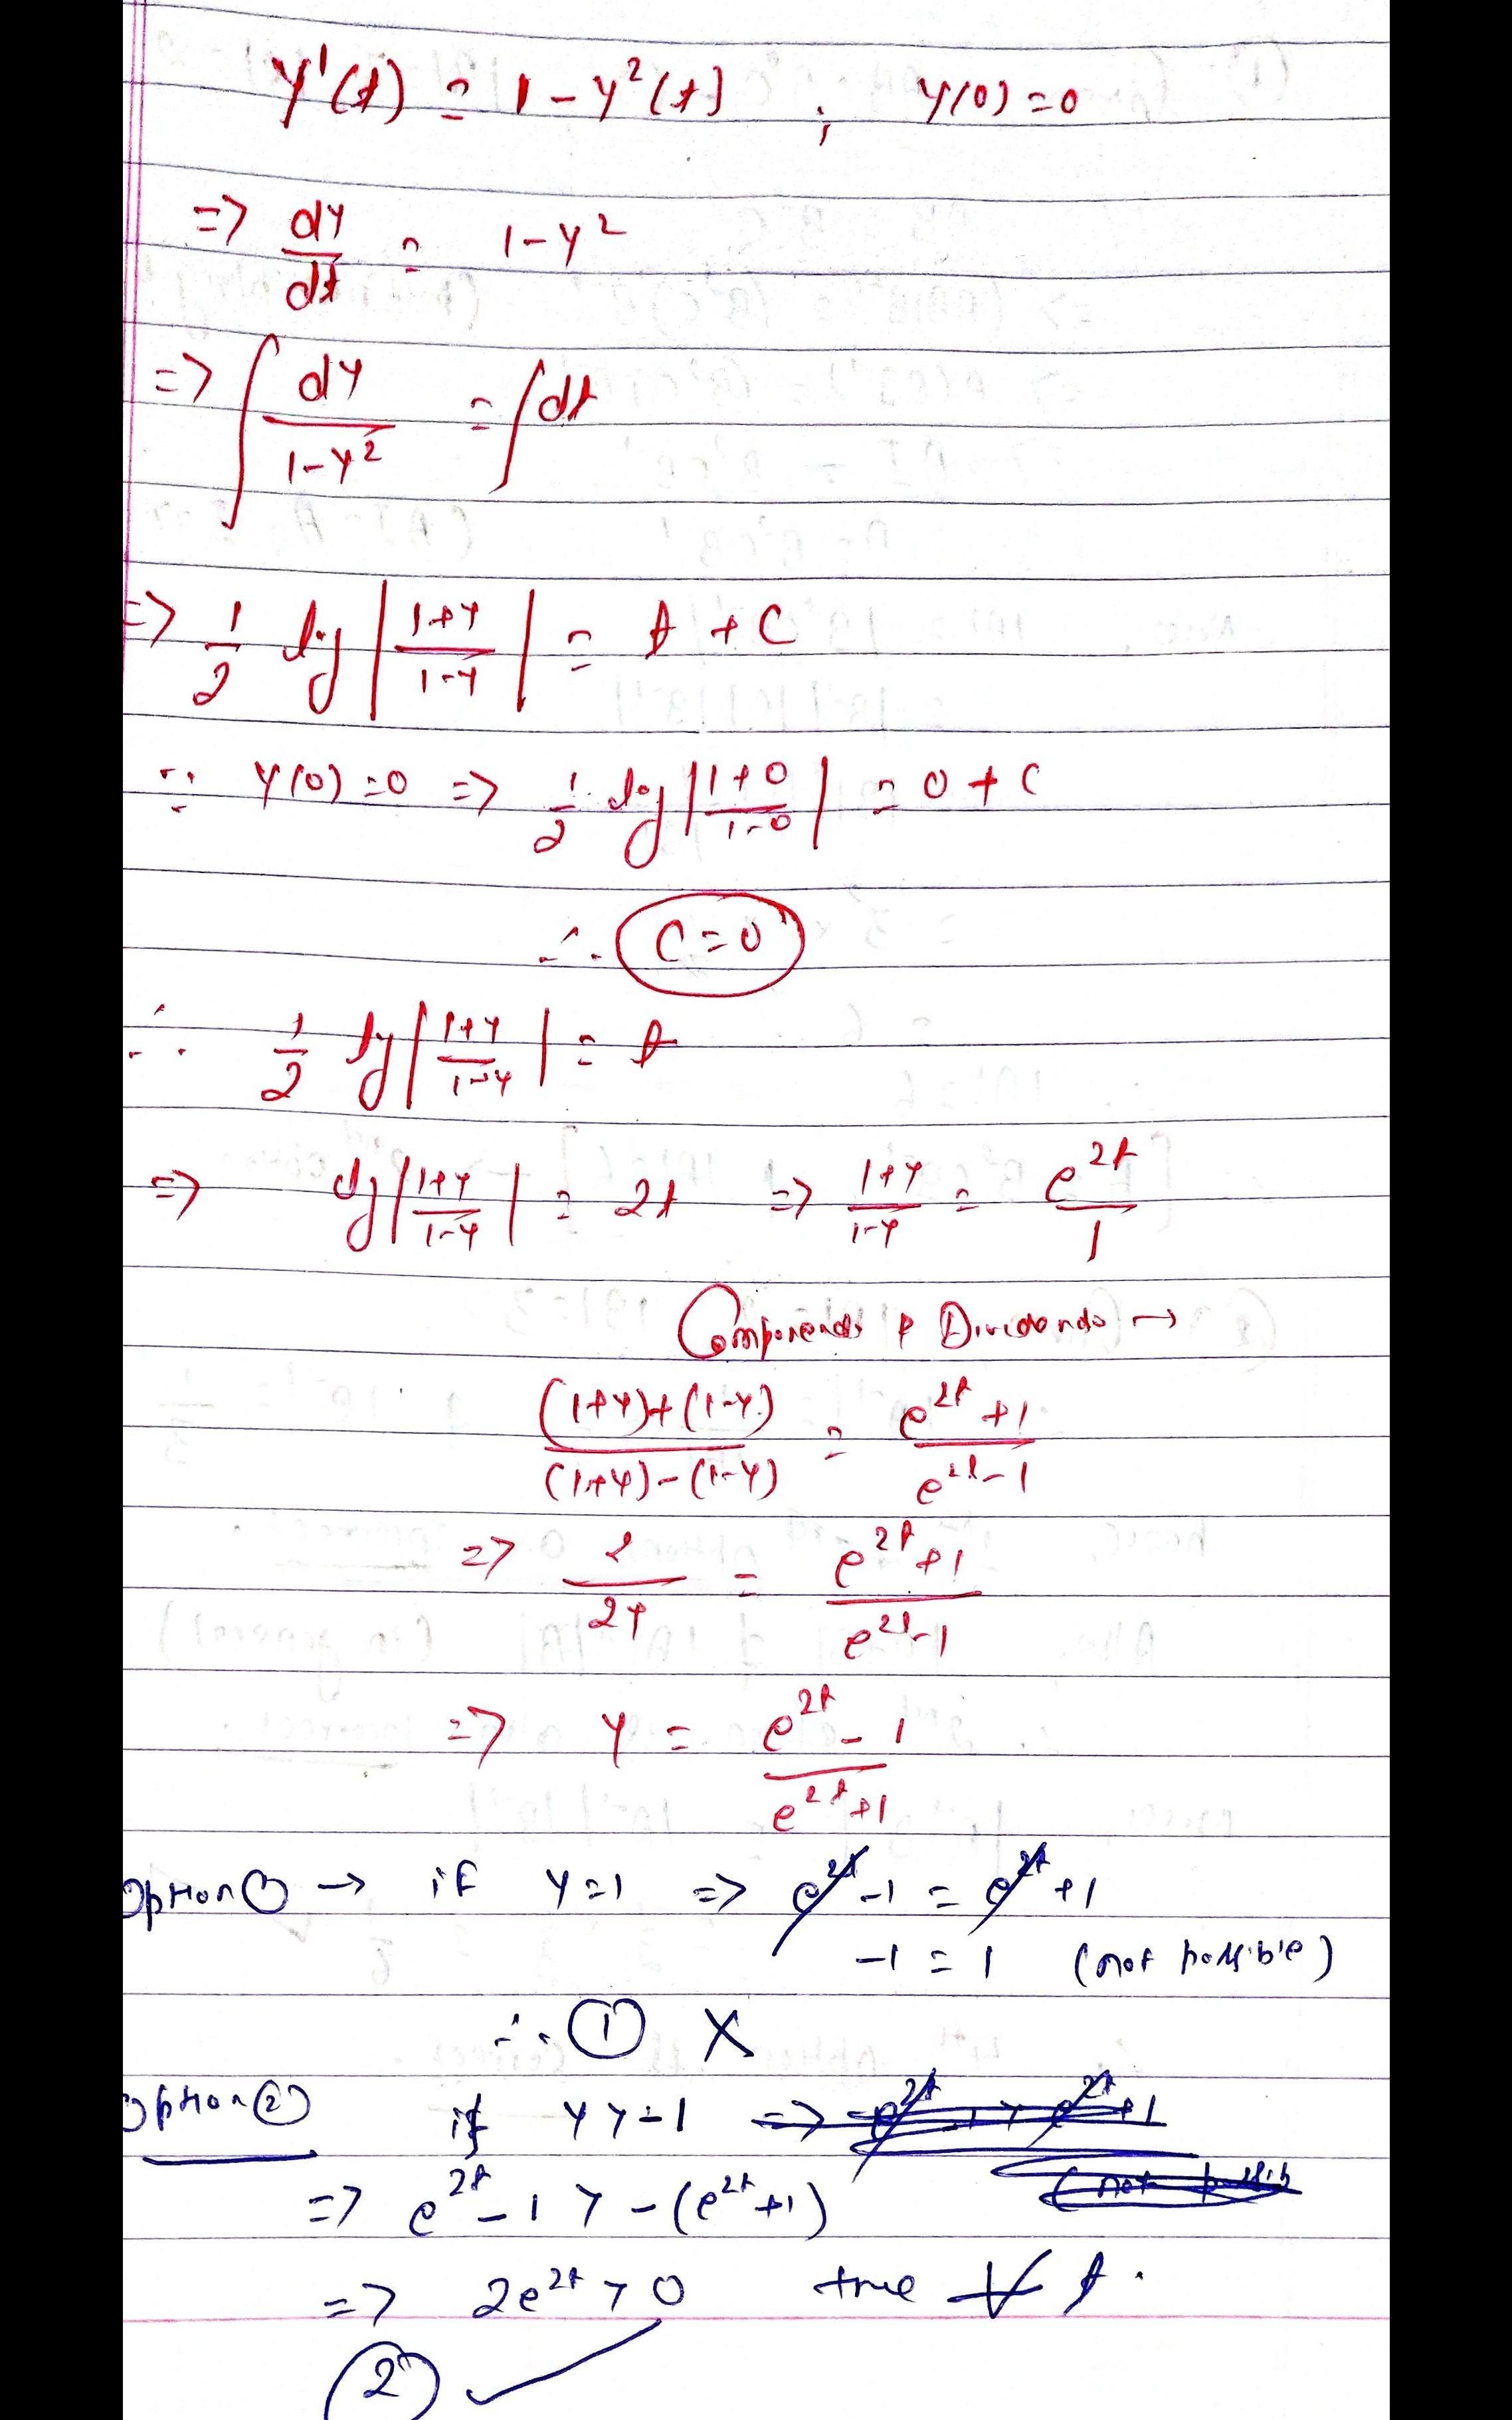 y'(t) = 1 - y²(t) ; y(0) = 0
=> dy/dt = 1 - y²
=> ∫ dy/(1-y²) = ∫dt
=> 1/2 log |(1+y)/(1-y)| = t + C
∵ y(0) = 0 => 1/2 log |(1+0)/(1-0)| = 0 + C
∴ C = 0
∴ 1/2 log |(1+y)/(1-y)| = t
=> log |(1+y)/(1-y)| = 2t => (1+y)/(1-y) = e^2t/1
Componendo & Dividendo →
((1+y)+(1-y))/((1+y)-(1-y)) = (e^2t + 1)/(e^2t - 1)
=> 2/2y = (e^2t + 1)/(e^2t - 1)
=> y = (e^2t - 1)/(e^2t + 1)
Option ① → if y = 1 => e^2t - 1 = e^2t + 1
-1 = 1 (not possible)
∴ ① X
Option ② if y > -1 =>
=> e^2t - 1 > -(e^2t + 1)
=> 2e^2t > 0 true ∀ t.
② ✓